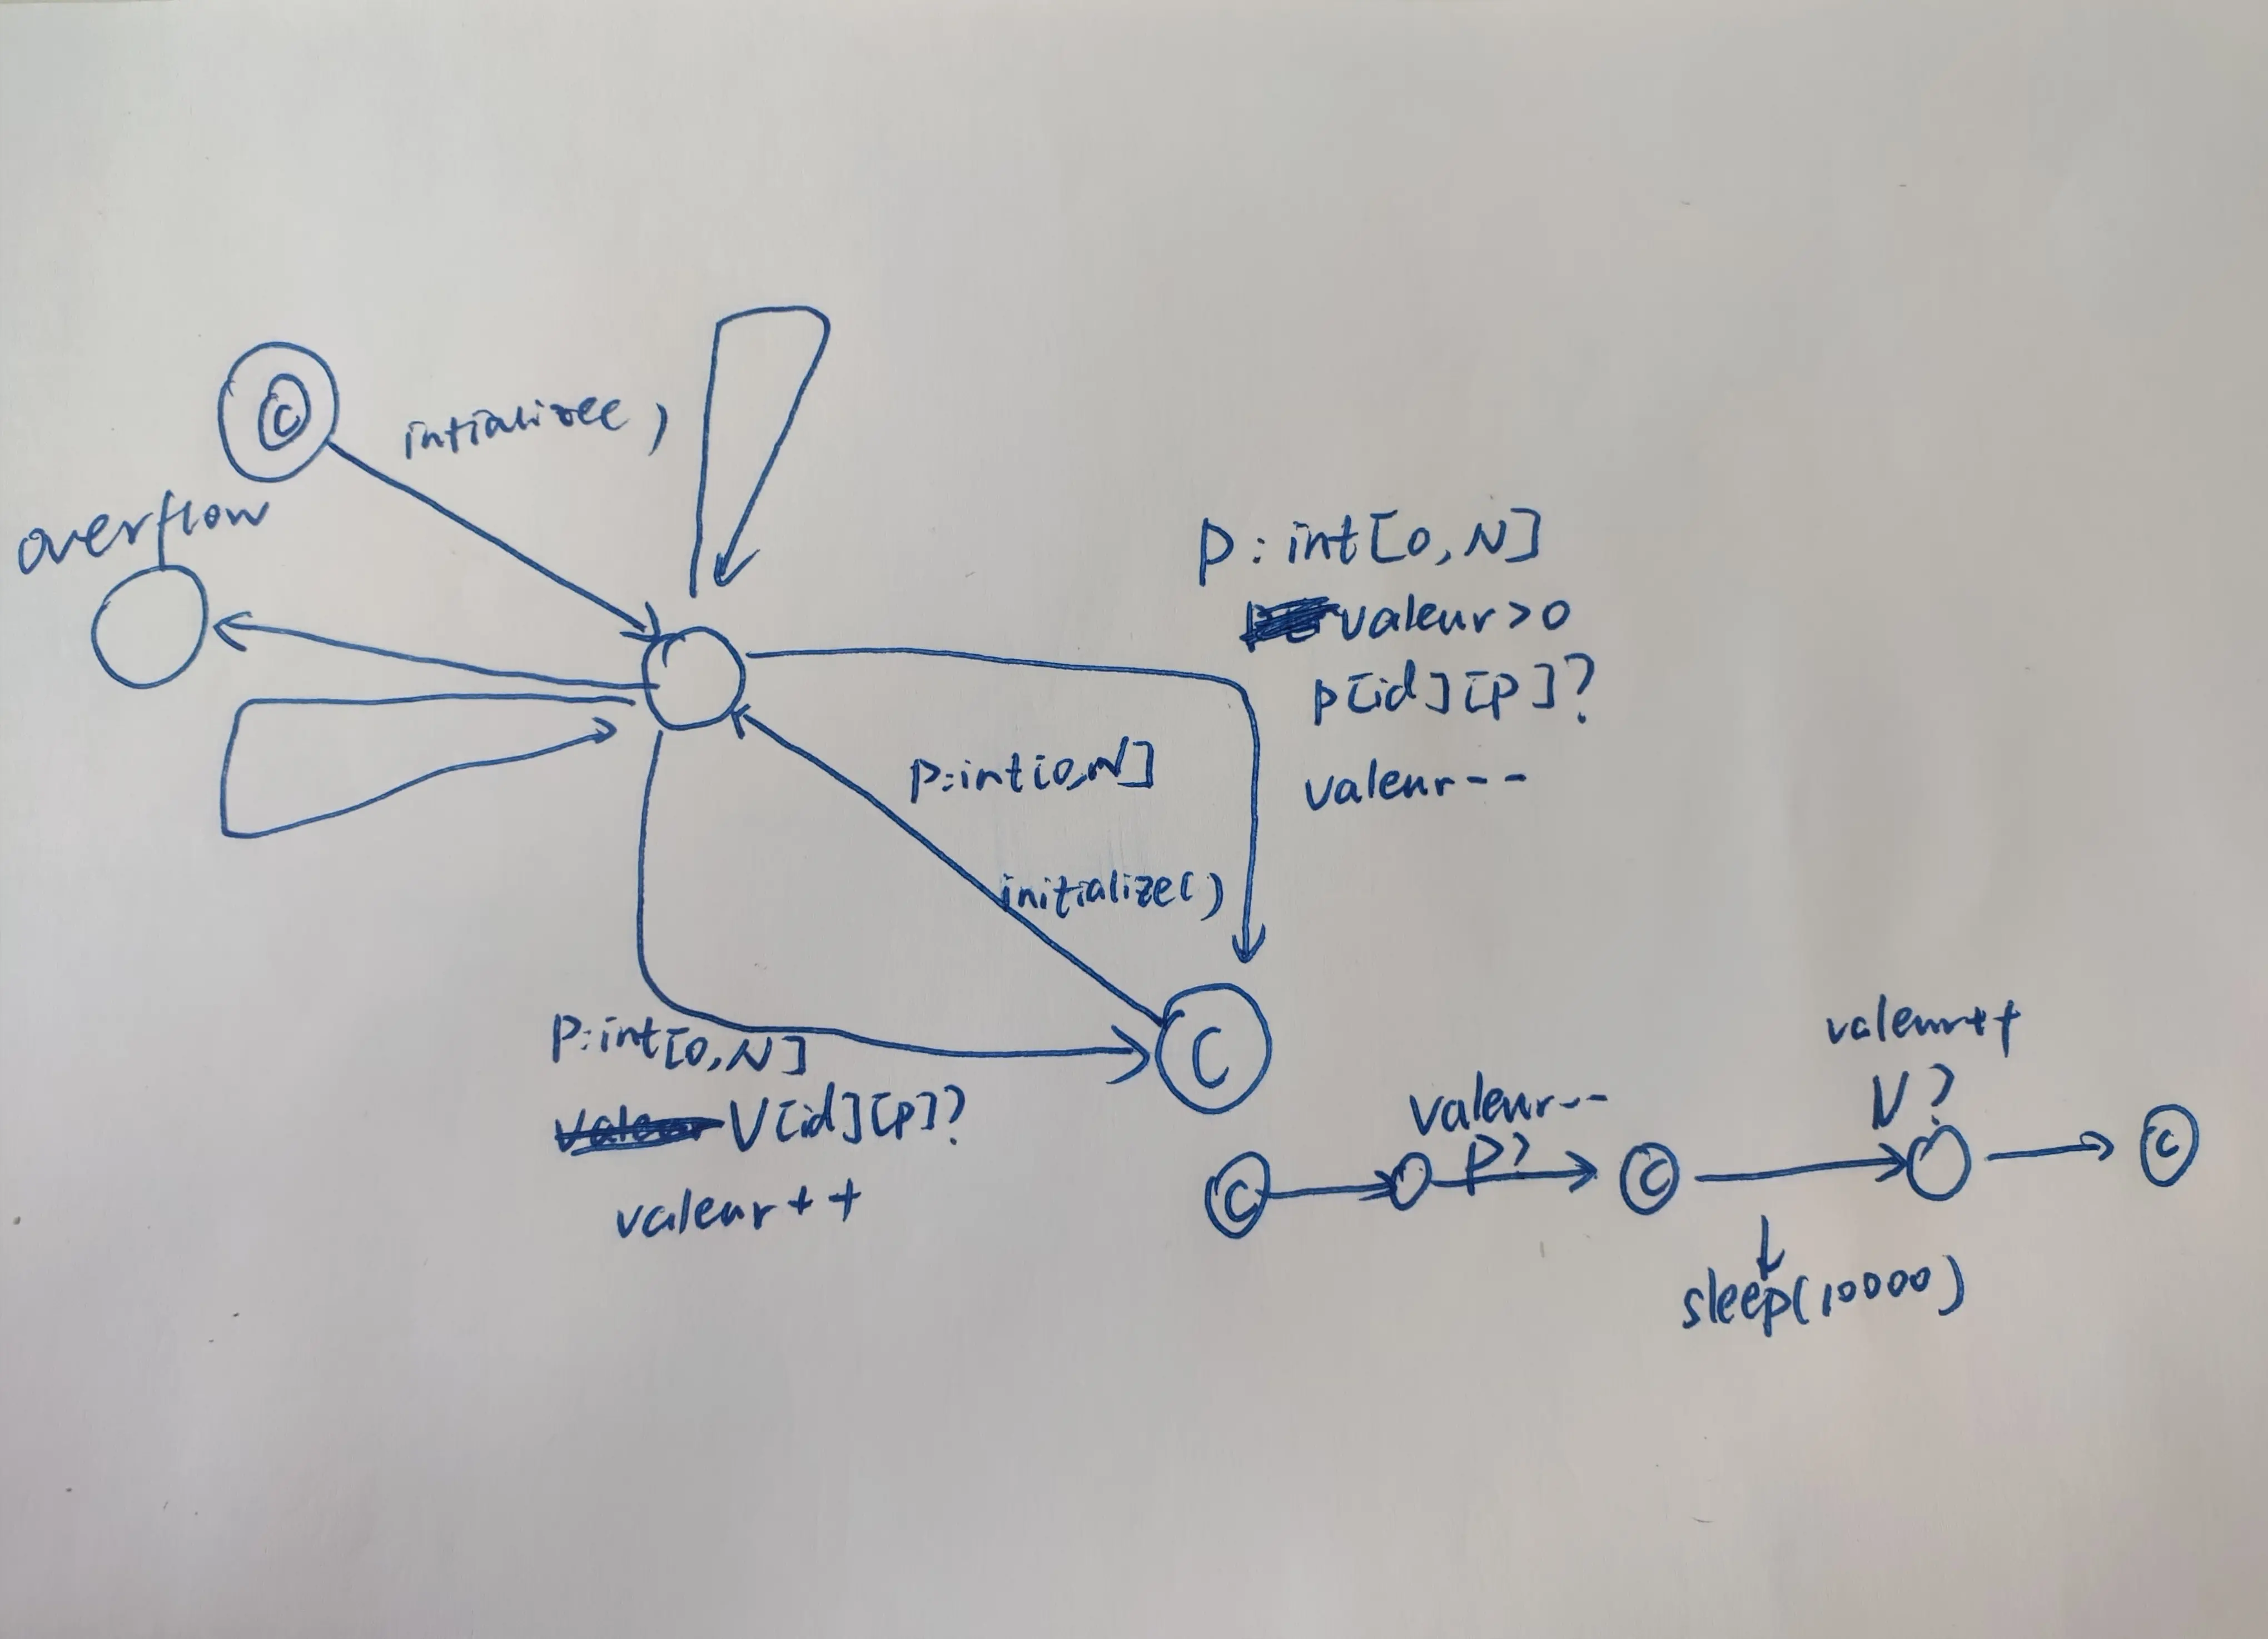 C
intialize()
overflow
p: int[0, N]
valeur>0
p[id][p]?
valeur--
p: int[0,N]
initialize()
C
p: int[0, N]
V[id][p]?
valeur++
valeur++
V?
valeur--
p?
C
C
C
sleep(10000)